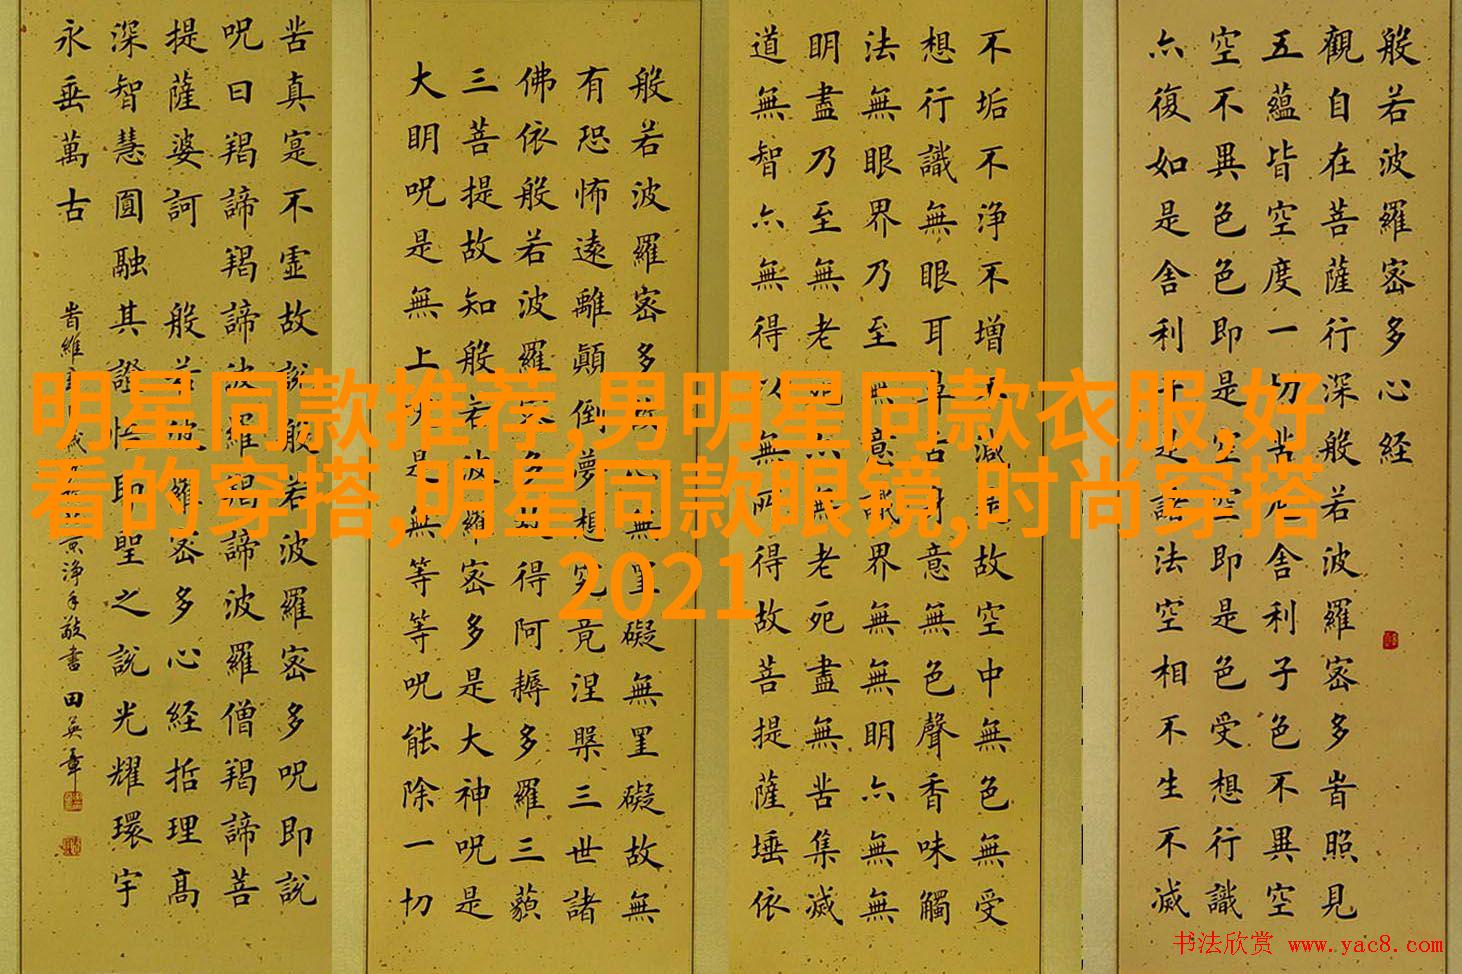 般若波羅密多心经
觀自在菩薩行深般若波羅密多旹照見
五蘊皆空度一切苦厄舍利子色不異空
空不異色色即是空空即是色受想行識
亦復如是舍利子是諸法空相不生不滅
不垢不淨不增不減是故空中無色無受
想行識無眼耳鼻舌身意無色聲香味觸
法無眼界乃至無意識界無無明亦無無
明盡乃至無老死亦無老死盡無苦集滅
道無智亦無得以無所得故菩提薩埵依
般若波羅密多故心無罣礙無罣礙故無
有恐怖遠離顛倒夢想究竟涅槃三世諸
佛依般若波羅密多故得阿耨多羅三藐
三菩提故知般若波羅密多是大神呪是
大明呪是無上呪是無等等呪能除一切
苦真寔不虛故說般若波羅密多呪即說
呪曰羯諦羯諦波羅羯諦波羅僧羯諦菩
提薩婆訶 般若波羅密多心经哲理高
深智慧圓融其證悟即聖之説光耀環宇
永垂萬古
旹維 京淨手敬書田英章
明星同款推荐,男明星同款衣服,好
看的穿搭,明星同款眼镜,时尚穿搭
2021
书法欣赏 www.yac8.com